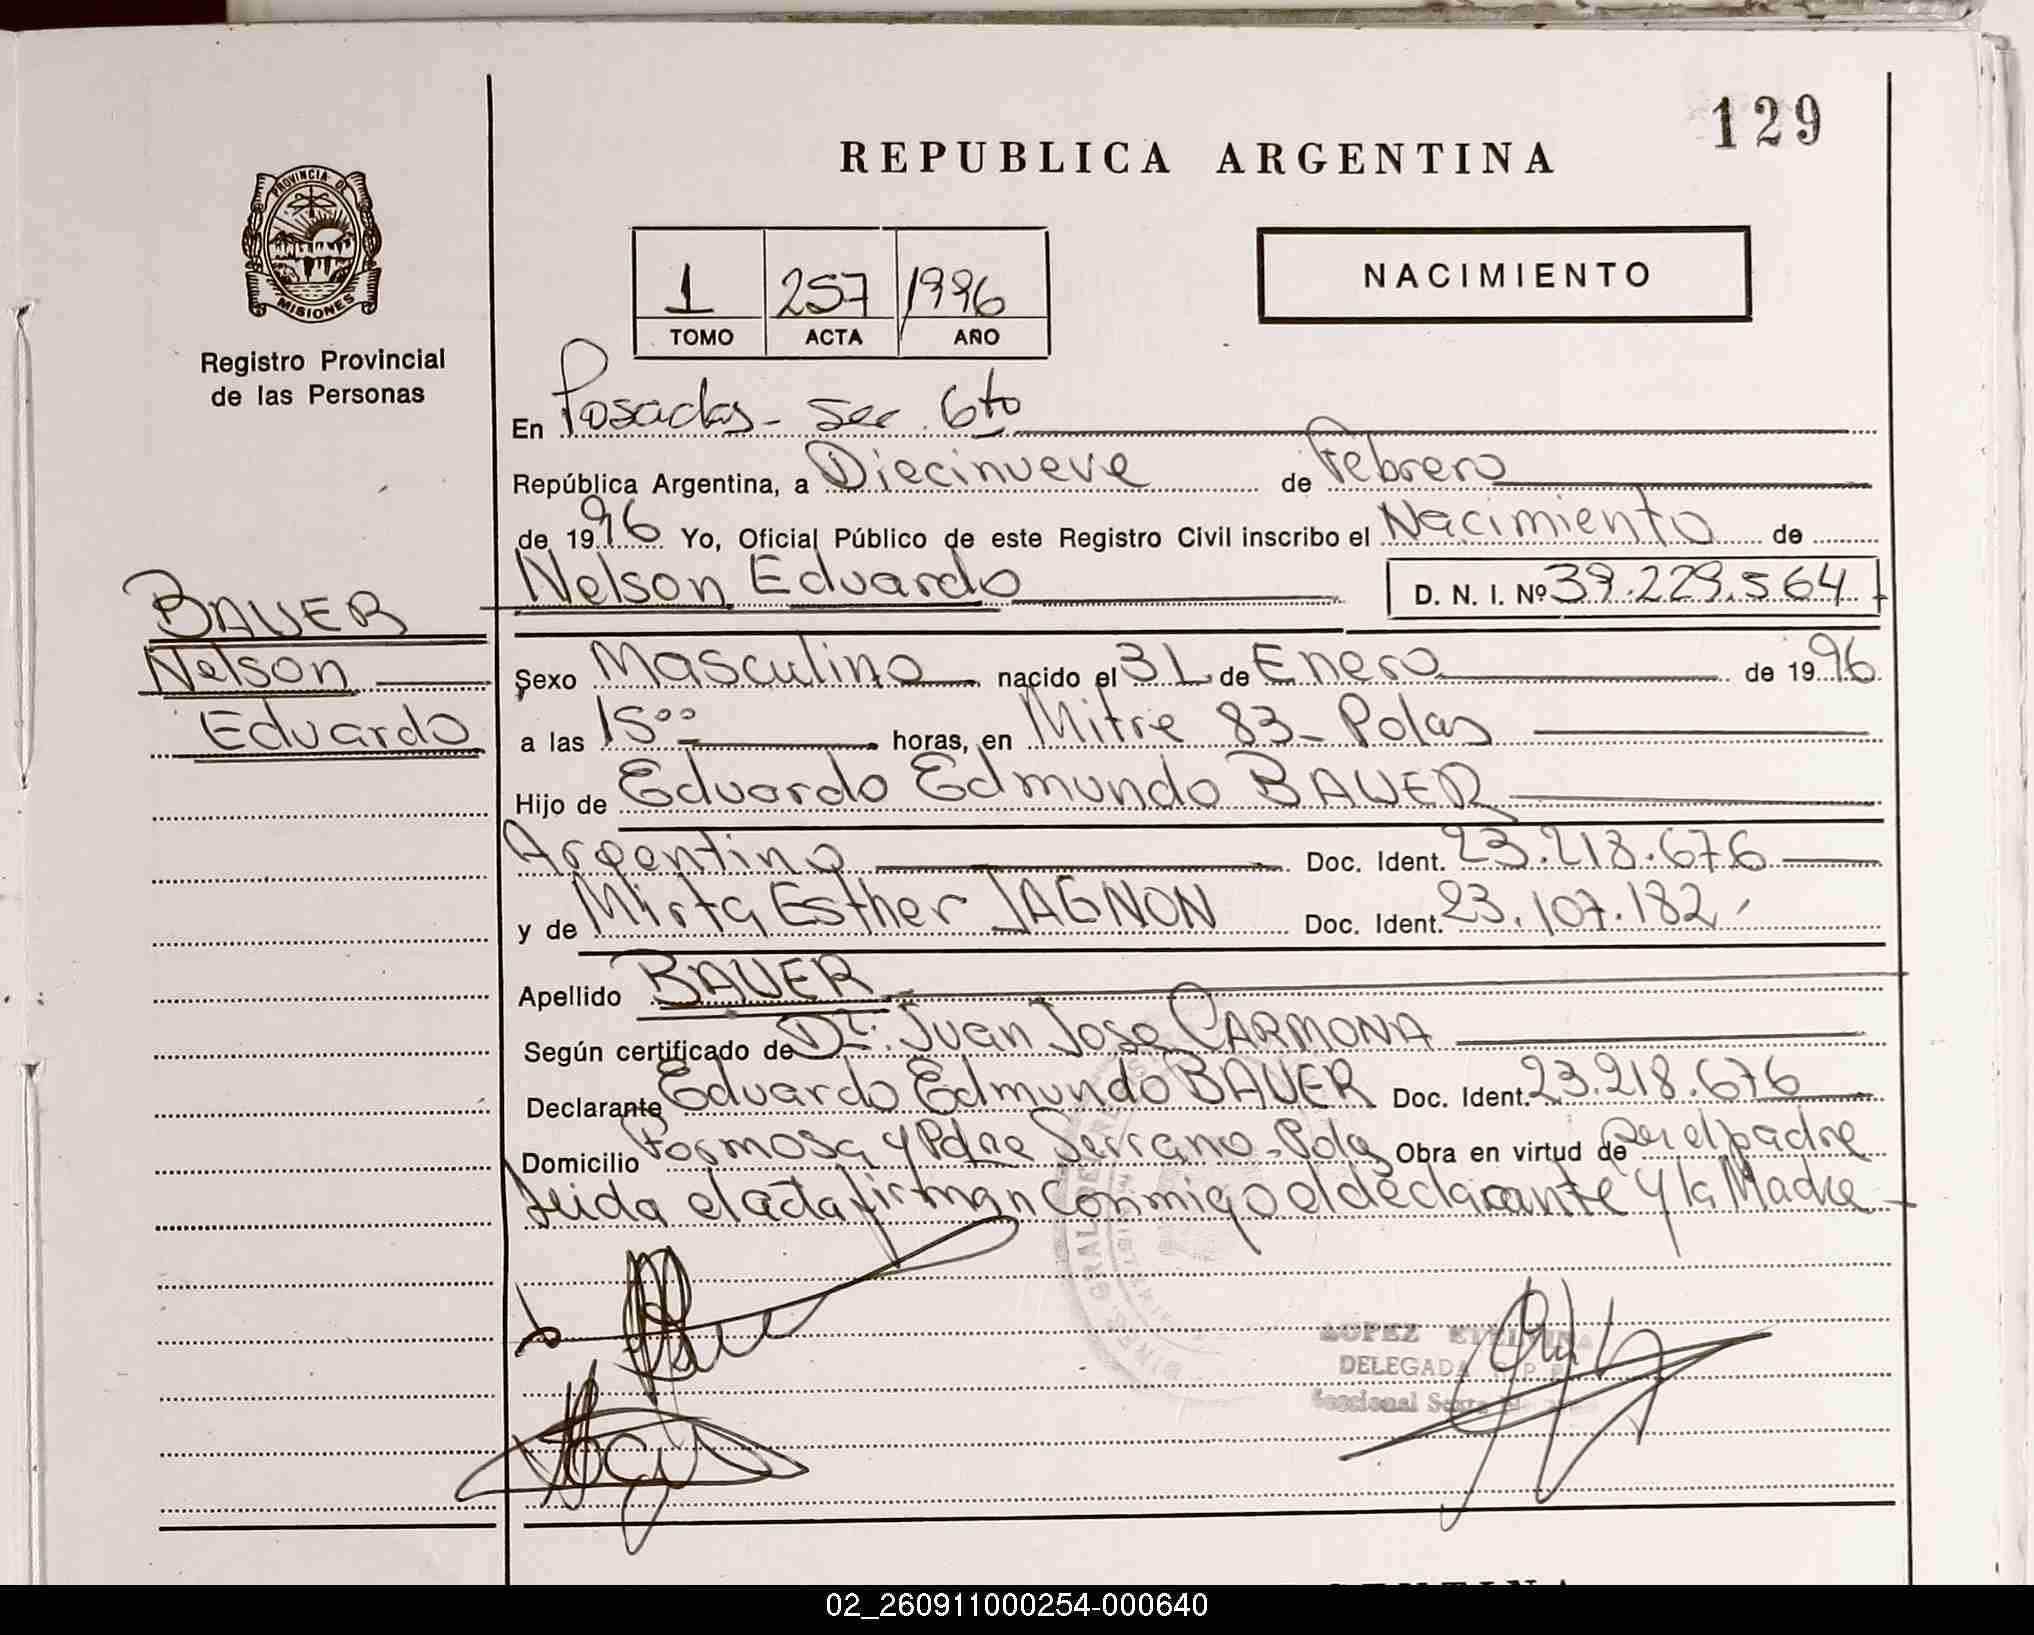 129
REPUBLICA ARGENTINA
PROVINCIA DE
MISIONES
Registro Provincial
de las Personas
1 257 1996
TOMO ACTA AÑO
NACIMIENTO
En Posadas - Sec. 6to
República Argentina, a Diecinueve de Febrero
de 1996 Yo, Oficial Público de este Registro Civil inscribo el Nacimiento de
Nelson Eduardo D. N. I. Nº 39.229.564
BAUER
Nelson
Eduardo
Sexo Masculino nacido el 31 de Enero de 1996
a las 15°° horas, en Mitre 83 - Pdas
Hijo de Eduardo Edmundo BAUER
Argentino Doc. Ident. 23.218.676
y de Mirta Esther JAGNON Doc. Ident. 23.107.182
Apellido BAUER
Según certificado de Dr. Juan Jose CARMONA
Declarante Eduardo Edmundo BAUER Doc. Ident. 23.218.676
Domicilio Formosa y Pdre Serrano - Pdas Obra en virtud de ser el padre
Leida el acta firman conmigo el declarante y la Madre
LOPEZ ETELVINA
DELEGADA
Seccional Sexta
02_260911000254-000640